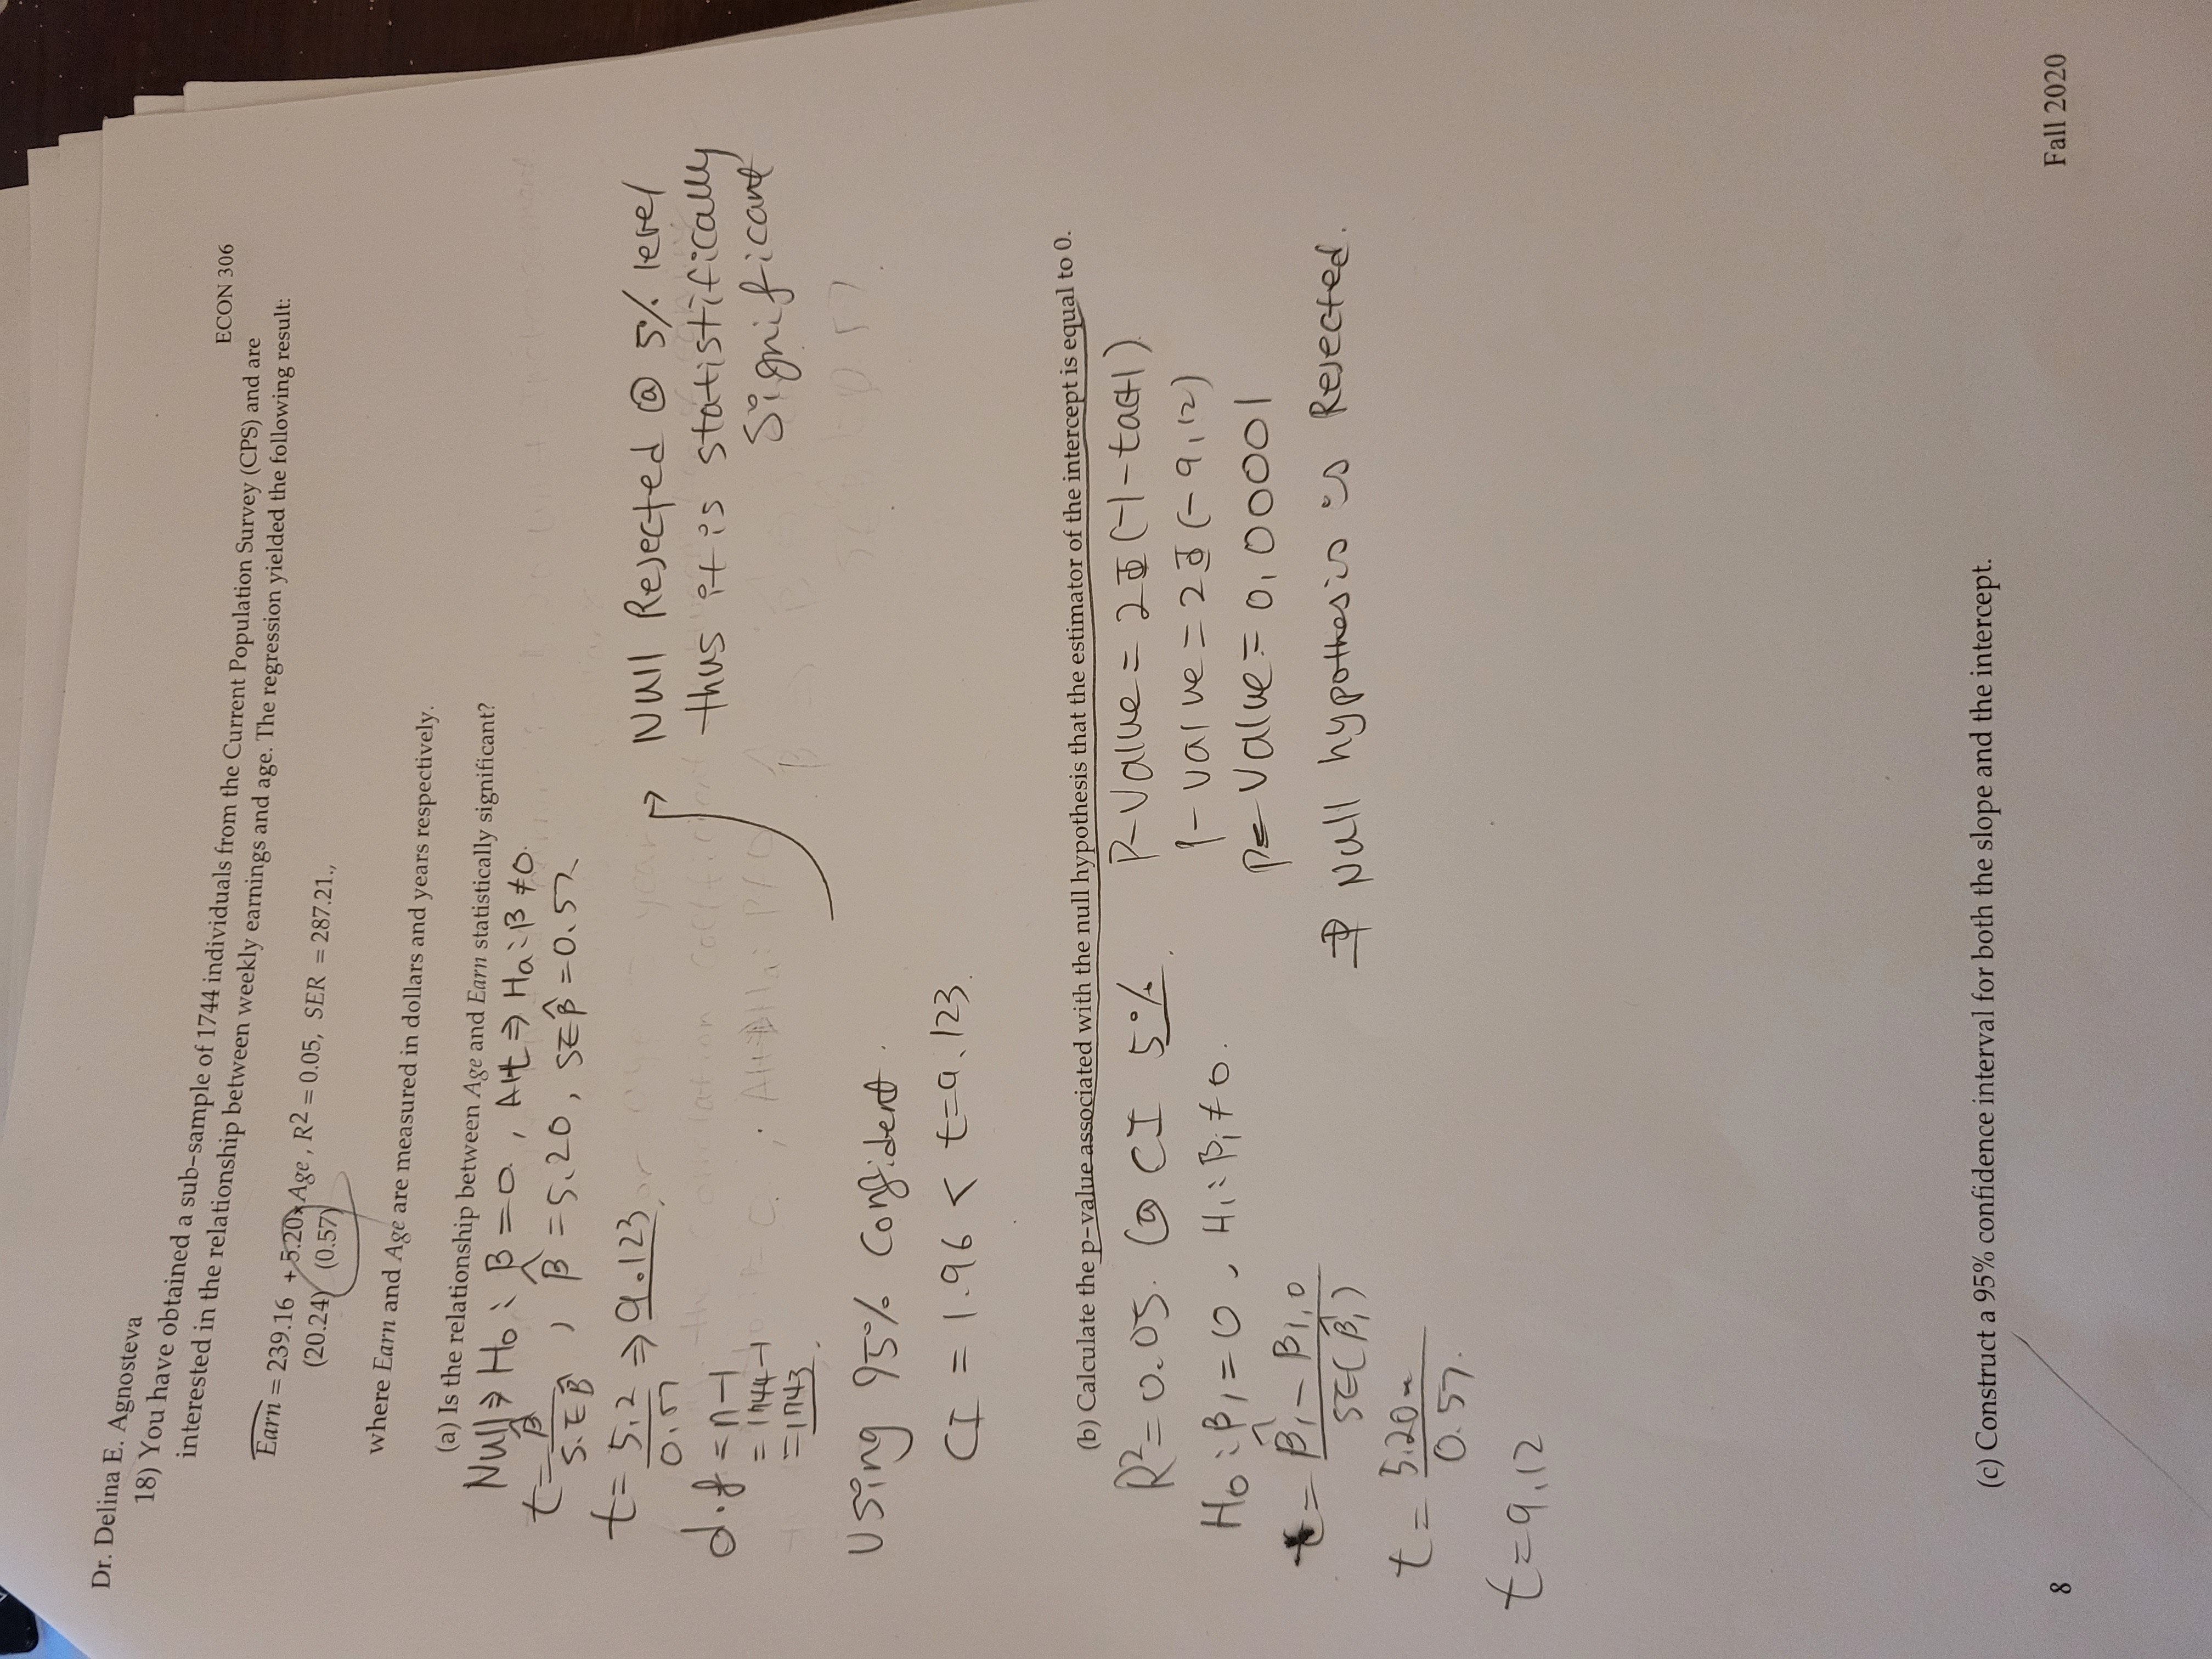 Dr. Delina E. Agnosteva
ECON 306
18) You have obtained a sub-sample of 1744 individuals from the Current Population Survey (CPS) and are
interested in the relationship between weekly earnings and age. The regression yielded the following result:
Earn = 239.16 + 5.20×Age , R2 = 0.05, SER = 287.21.,
(20.24) (0.57)
where Earn and Age are measured in dollars and years respectively.
(a) Is the relationship between Age and Earn statistically significant?
Null ⇒ Ho : β = 0 , Alt ⇒ Ha : β ≠ 0
t = β̂ / S.E β̂ , β̂ = 5.20 , SE β̂ = 0.57
t = 5.2 / 0.57 ⇒ 9.123
d.f = n-1
= 1744-1
= 1743
Using 95% Confident.
CI = 1.96 < t=9.123
Null Rejected @ 5% level
thus it is statistifically
Significant
(b) Calculate the p-value associated with the null hypothesis that the estimator of the intercept is equal to 0.
R² = 0.05. @ CI 5%.
Ho : β1 = 0 , H1 : β1 ≠ 0.
t = β̂1 - β1,0 / SE(β̂1)
t = 5.20 / 0.57
t = 9.12
P-Value = 2Φ(-|-tact|)
P-value = 2Φ(-9.12)
P-Value = 0.00001
⇒ Null hypothesis is Rejected.
(c) Construct a 95% confidence interval for both the slope and the intercept.
8
Fall 2020